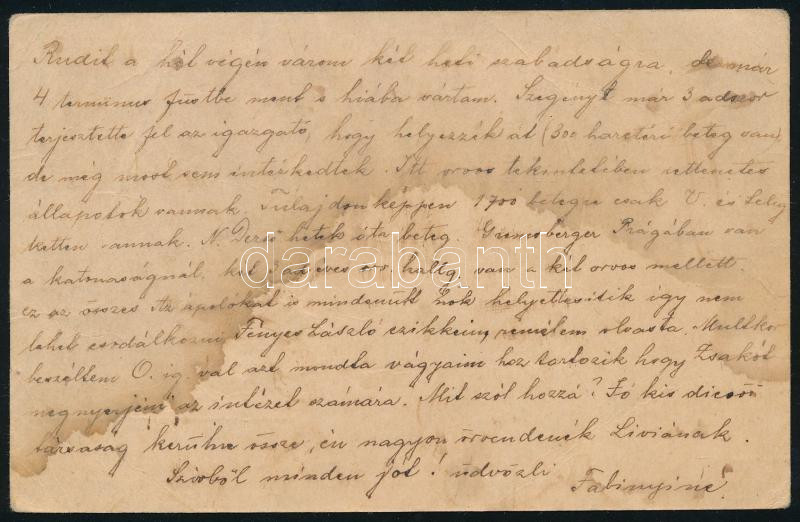 Rudit a hét végén várom két heti szabadságra, de már
4 terminus füstbe ment s hiába vártam. Szegényt már 3 adszor
terjesztette fel az igazgató, hogy helyezzék át (300 harctéri beteg van)
de még most sem intézkedtek. Itt orvos tekintetében rettenetes
állapotok vannak. Tulajdonképpen 1700 betegre csak V. és
ketten vannak. N. Dezső hetek óta beteg. Prágában van
a katonaságnál, két éves orv. hallg. van a két orvos mellett
ez az össz es Az ápolókat is mindenütt nők helyettesitik igy nem
lehet csodálkozni Fényes László czikkein, remélem olvasta. Multkor
beszéltem O. ig. val azt mondta vágyaim hoz tartozik hogy Zsakót
megnyerjem az intézet számára. Mit szól hozzá? Jó kis dicső
társaság kerülne össze, én nagyon örvendenék Liviának.
Szivből minden jót! üdvözli
Fabinyiné
darabanth